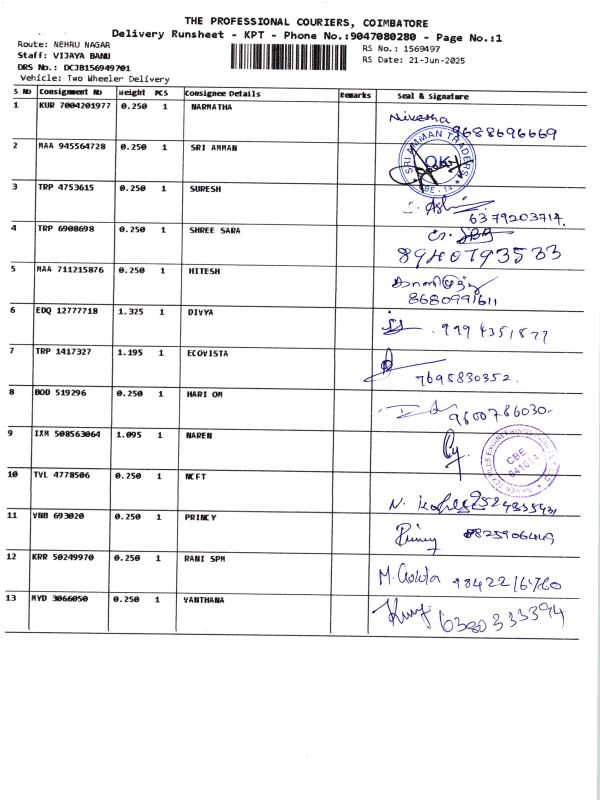 THE PROFESSIONAL COURIERS, COIMBATORE
Delivery Runsheet - KPT - Phone No.:9047080280 - Page No.:1
Route: NEHRU NAGAR
RS No.: 1569497
Staff: VIJAYA BANU
RS Date: 21-Jun-2025
DRS No.: DCJB156949701
Vehicle: Two Wheeler Delivery
S NO Consignment No Weight PCS Consignee Details Remarks Seal & Signature
1 KUR 7004201977 0.250 1 NARMATHA
Nivetha 9688696669
2 MAA 945564728 0.250 1 SRI AMMAN
SRI AMMAN TRADERS
OK
3 TRP 4753615 0.250 1 SURESH
6379203714
4 TRP 6908698 0.250 1 SHREE SARA
5 MAA 711215876 0.250 1 HITESH
8680991611
6 EDQ 12777718 1.325 1 DIVYA
7 TRP 1417327 1.195 1 ECOVISTA
7695830352
8 BOD 519296 0.250 1 HARI OM
9600786030
9 IXM 508563064 1.095 1 NAREN
CBE
641014
10 TVL 4778506 0.250 1 NCFT
11 VNB 693020 0.250 1 PRINCY
Princy
12 KRR 50249970 0.250 1 RANI SPM
13 MYD 3066050 0.250 1 VANTHANA
6380333394